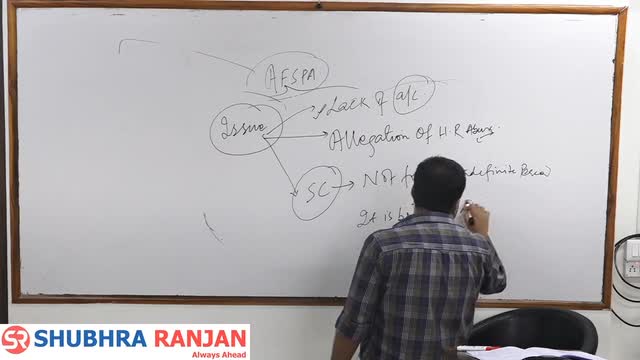 AFSPA
Issue
Lack of a/c.
Allegation of H.R Abuses.
SC → Not for indefinite Period
It is
SR SHUBHRA RANJAN
Always Ahead